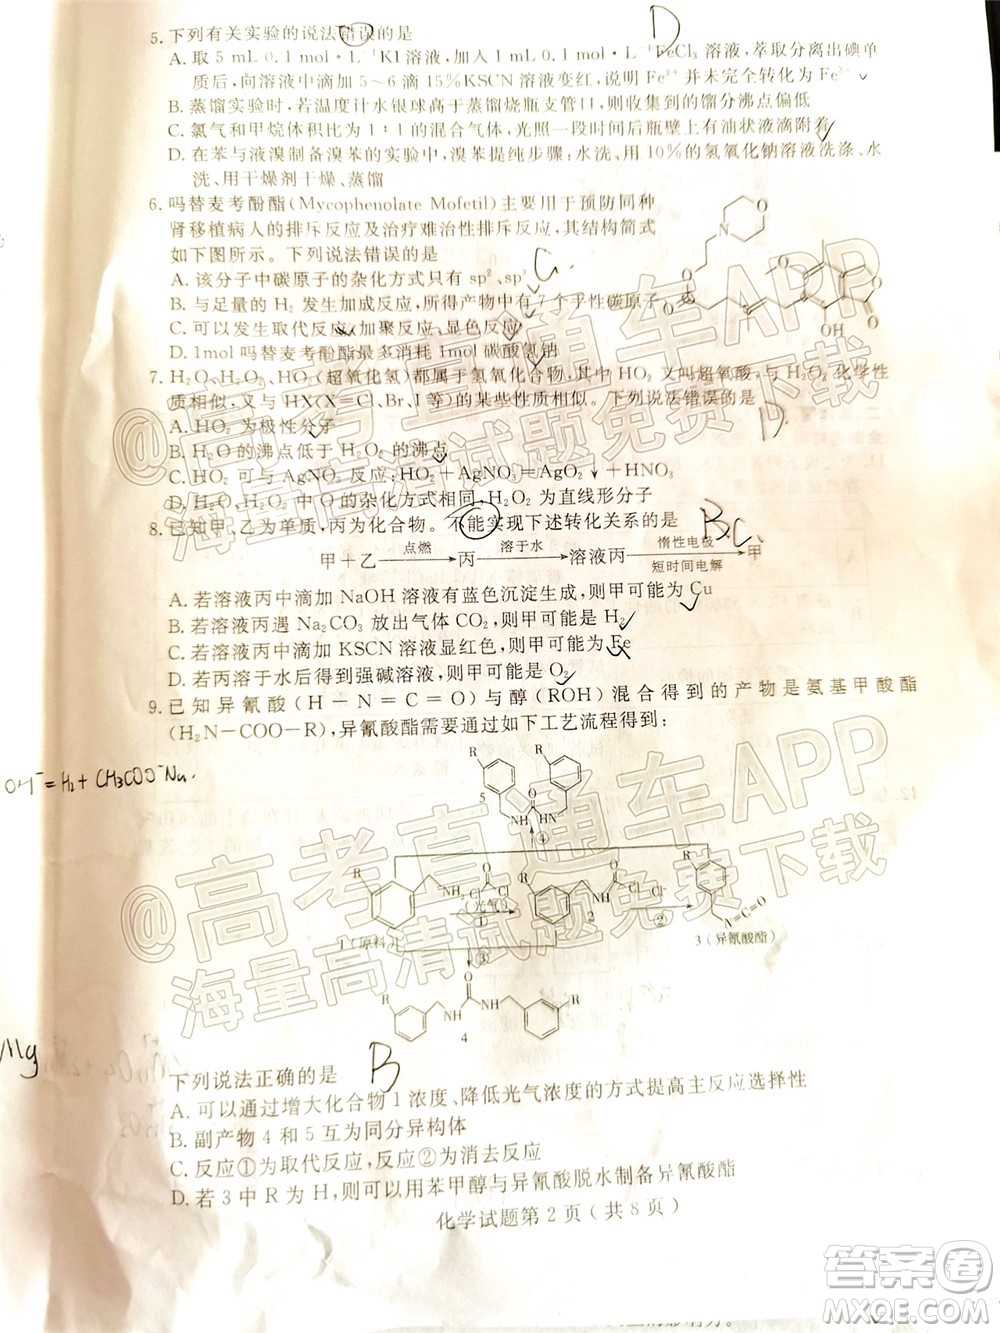 D
5.下列有关实验的说法错误的是
A.取 5 mL 0.1 mol·L⁻¹KI 溶液,加入 1 mL 0.1 mol·L⁻¹FeCl₃ 溶液,萃取分离出碘单
质后,向溶液中滴加 5~6 滴 15%KSCN 溶液变红,说明 Fe³⁺ 并未完全转化为 Fe²⁺
B.蒸馏实验时,若温度计水银球高于蒸馏烧瓶支管口,则收集到的馏分沸点偏低
C.氯气和甲烷体积比为 1:1 的混合气体,光照一段时间后瓶壁上有油状液滴附着
D.在苯与液溴制备溴苯的实验中,溴苯提纯步骤:水洗、用 10%的氢氧化钠溶液洗涤、水
洗、用干燥剂干燥、蒸馏
6.吗替麦考酚酯(Mycophenolate Mofetil)主要用于预防同种
肾移植病人的排斥反应及治疗难治性排斥反应,其结构简式
如下图所示。下列说法错误的是
A.该分子中碳原子的杂化方式只有 sp²、sp³
B.与足量的 H₂ 发生加成反应,所得产物中有 7 个手性碳原子
C.可以发生取代反应、加聚反应、显色反应
D.1mol吗替麦考酚酯最多消耗 1mol 碳酸氢钠
7.H₂O、H₂O₂、HO₂(超氧化氢)都属于氢氧化合物,其中 HO₂ 又叫超氧酸,与 H₂O₂ 化学性
质相似,又与 HX(X=Cl、Br、I 等)的某些性质相似。下列说法错误的是
D
A.HO₂ 为极性分子
B.H₂O 的沸点低于 H₂O₂ 的沸点
C.HO₂ 可与 AgNO₃ 反应:HO₂+AgNO₃=AgO₂↓+HNO₃
D.H₂O、H₂O₂ 中 O 的杂化方式相同,H₂O₂ 为直线形分子
8.已知甲、乙为单质,丙为化合物。不能实现下述转化关系的是
B.C.
甲+乙 点燃 丙 溶于水 溶液丙 惰性电极 短时间电解 甲
A.若溶液丙中滴加 NaOH 溶液有蓝色沉淀生成,则甲可能为 Cu
B.若溶液丙遇 Na₂CO₃ 放出气体 CO₂,则甲可能是 H₂
C.若溶液丙中滴加 KSCN 溶液显红色,则甲可能为 Fe
D.若丙溶于水后得到强碱溶液,则甲可能是 O₂
9.已知异氰酸(H-N=C=O)与醇(ROH)混合得到的产物是氨基甲酸酯
(H₂N-COO-R),异氰酸酯需要通过如下工艺流程得到:
OH⁻=H₂+CH₃COO⁻Na.
R R
5 O
NH HN
④
R NH₂ O Cl Cl (光气) ① R NH O Cl 2 ② R N=C=O
1(原料) ③ 3(异氰酸酯)
R NH O NH R
4
Mg
下列说法正确的是
B
A.可以通过增大化合物 1 浓度、降低光气浓度的方式提高主反应选择性
B.副产物 4 和 5 互为同分异构体
C.反应①为取代反应,反应②为消去反应
D.若 3 中 R 为 H,则可以用苯甲醇与异氰酸脱水制备异氰酸酯
化学试题第 2 页(共 8 页)
@高考直通车APP
海量高清试题免费下载
@高考直通车APP
海量高清试题免费下载
答案卷
MXQE.COM